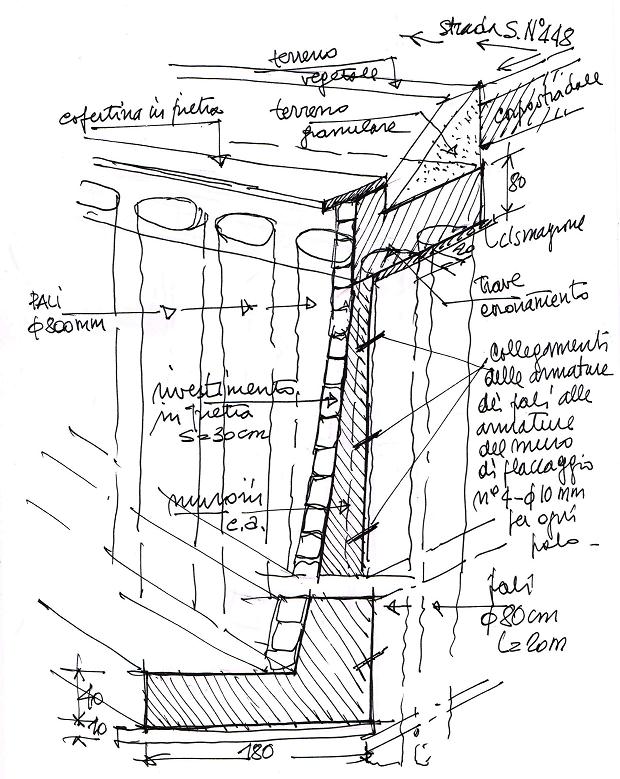 strada S. N° 448
terreno
vegetale
copertina in pietra
terreno
granulare
corpo stradale
80
cls magrone
20
trave
coronamento
PALI
φ 800 mm
collegamenti
delle armature
dei pali alle
armature
del muro
di placcaggio
n° 4-φ10 mm
per ogni
palo -
rivestimento
in pietra
s = 30 cm
muro in
c.a.
pali
φ 80 cm
L = 20 m
40
10
180